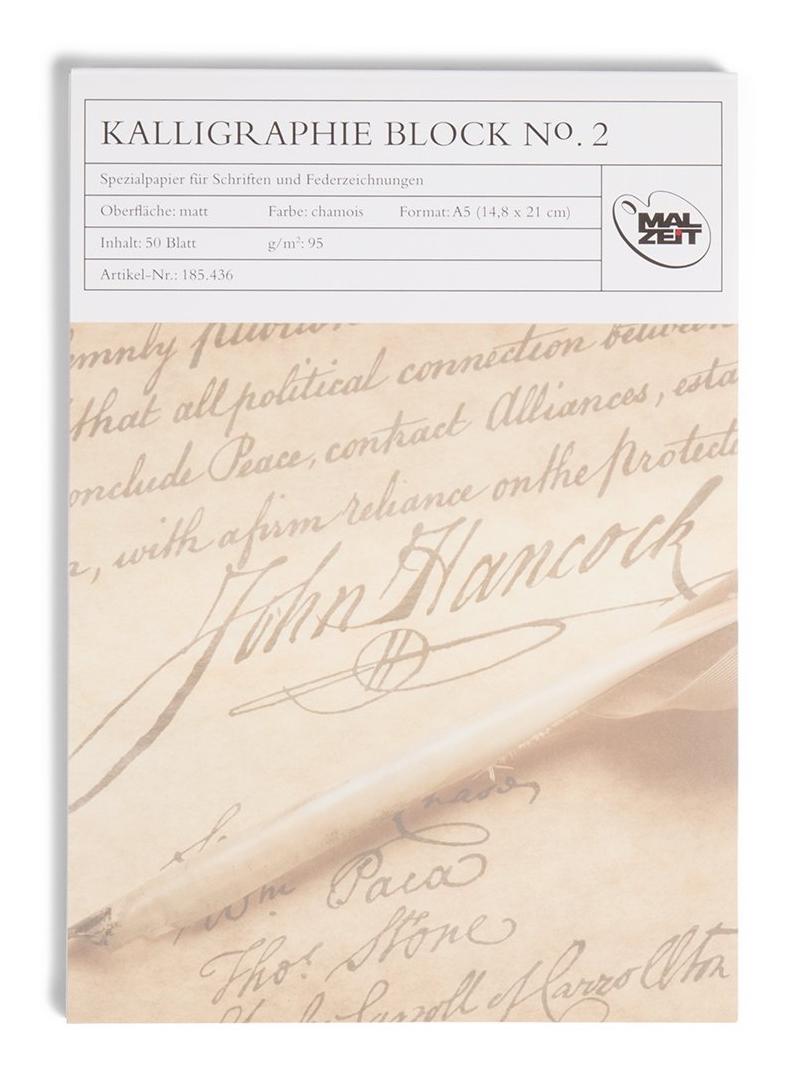 KALLIGRAPHIE BLOCK No. 2
Spezialpapier für Schriften und Federzeichnungen
Oberfläche: matt Farbe: chamois Format: A5 (14,8 x 21 cm)
Inhalt: 50 Blatt g/m²: 95
Artikel-Nr.: 185.436
MAL
ZEIT
that all political connection between
conclude Peace, contract Alliances, esta
n, with a firm reliance on the protecti
John Hancock
Wm Paca
Thos. Stone
Carroll of Carrollton